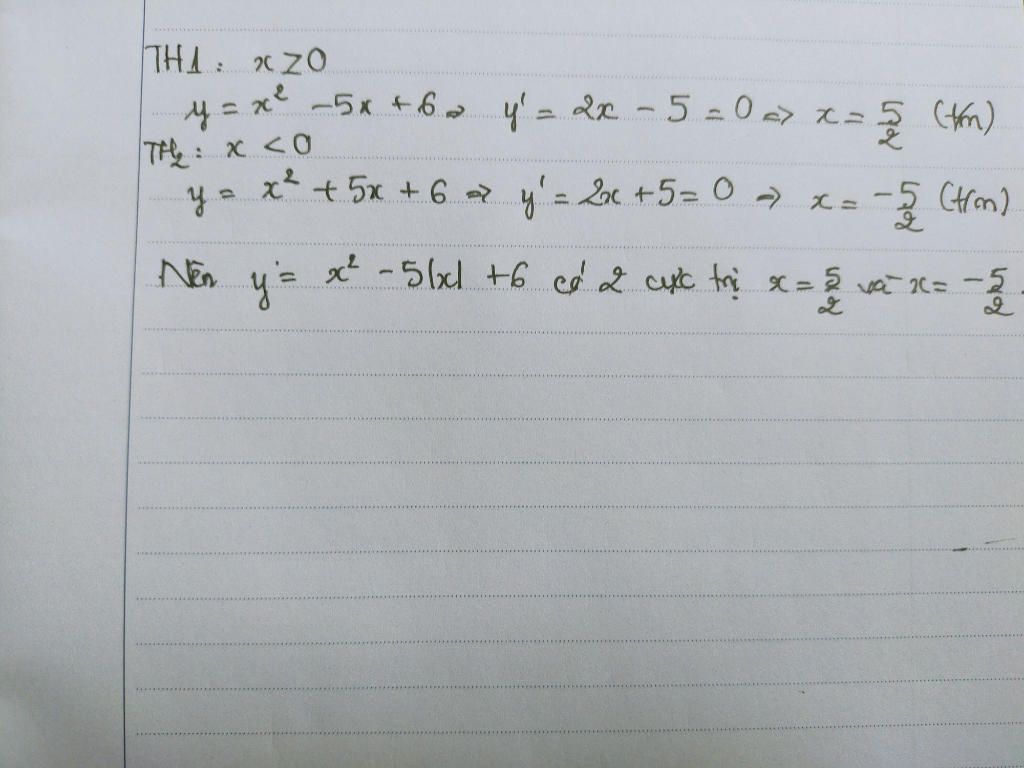 TH1: x ≥ 0
y = x² - 5x + 6 => y' = 2x - 5 = 0 => x = 5/2 (t/m)
TH2: x < 0
y = x² + 5x + 6 => y' = 2x + 5 = 0 => x = -5/2 (t/m)
Nên y = x² - 5|x| + 6 có 2 cực trị x = 5/2 và x = -5/2.